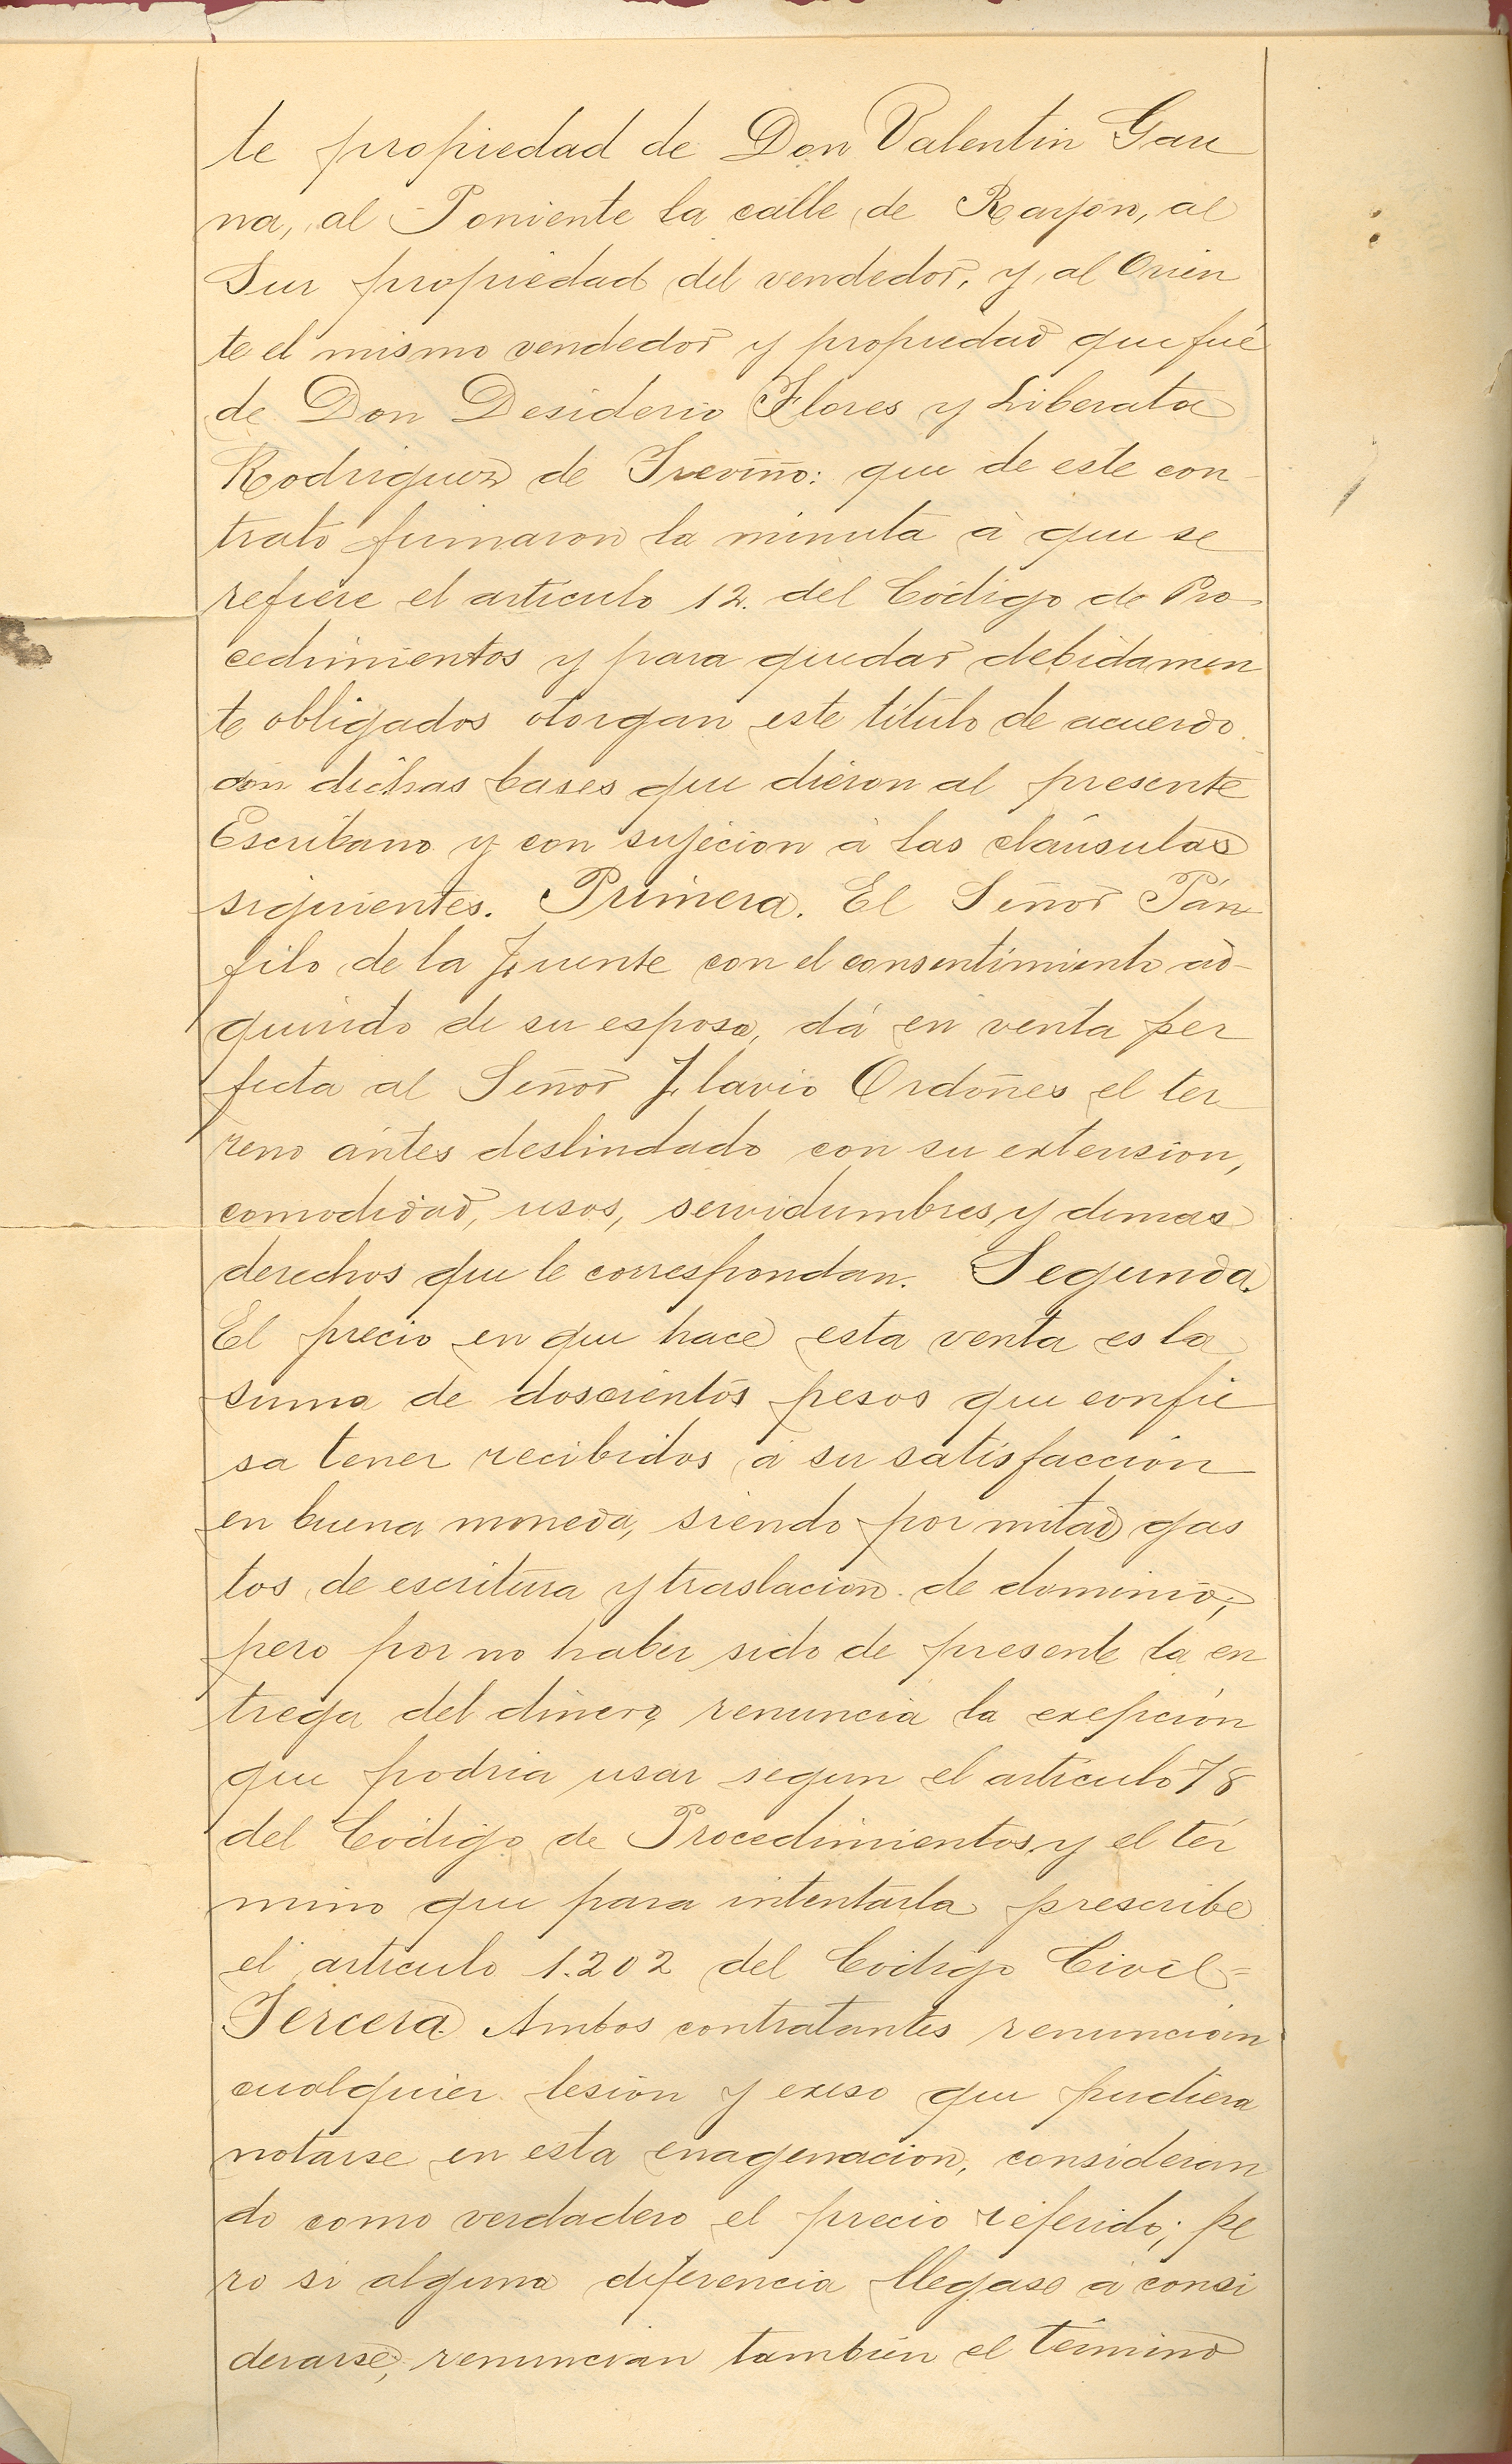 te propiedad de Don Valentin Gau
na, al Poniente la calle de Rayón, al
Sur propiedad del vendedor, y al Orien
te el mismo vendedor y propiedad que fué
de Don Desiderio Flores y Liberata
Rodriguez de Treviño: que de este con
trato firmaron la minuta á que se
refiere el artículo 12. del Código de Pro-
cedimientos y para quedar debidamen
te obligados otorgan este título de acuerdo
con dichas bases que dieron al presente
Escribano y con sujecion á las cláusulas
siguientes. Primera. El Señor Pán
filo de la Fuente con el consentimiento ad-
quirido de su esposa, dá en venta per
fecta al Señor Flavio Ordoñes el ter
reno ántes deslindado con su extension,
comodidad, usos, servidumbres y demas
derechos que le correspondan. Segunda.
El precio en que hace esta venta es la
suma de doscientos pesos que confie
sa tener recibidos á su satisfacción
en buena moneda, siendo por mitad gas
tos de escritura y traslacion de dominio;
pero por no haber sido de presente la en
trega del dinero, renuncia la exepción
que podria usar segun el artículo 78
del Código de Procedimientos y el tér
mino que para intentarla prescribe
el artículo 1.202 del Código Civil=
Tercera. Ambos contratantes renuncian
cualquier lesión y exeso que pudiera
notarse en esta enagenacion, consideran
do como verdadero el precio referido; pe
ro si alguna diferencia llegase á consi
derarse, renuncian tambien el término